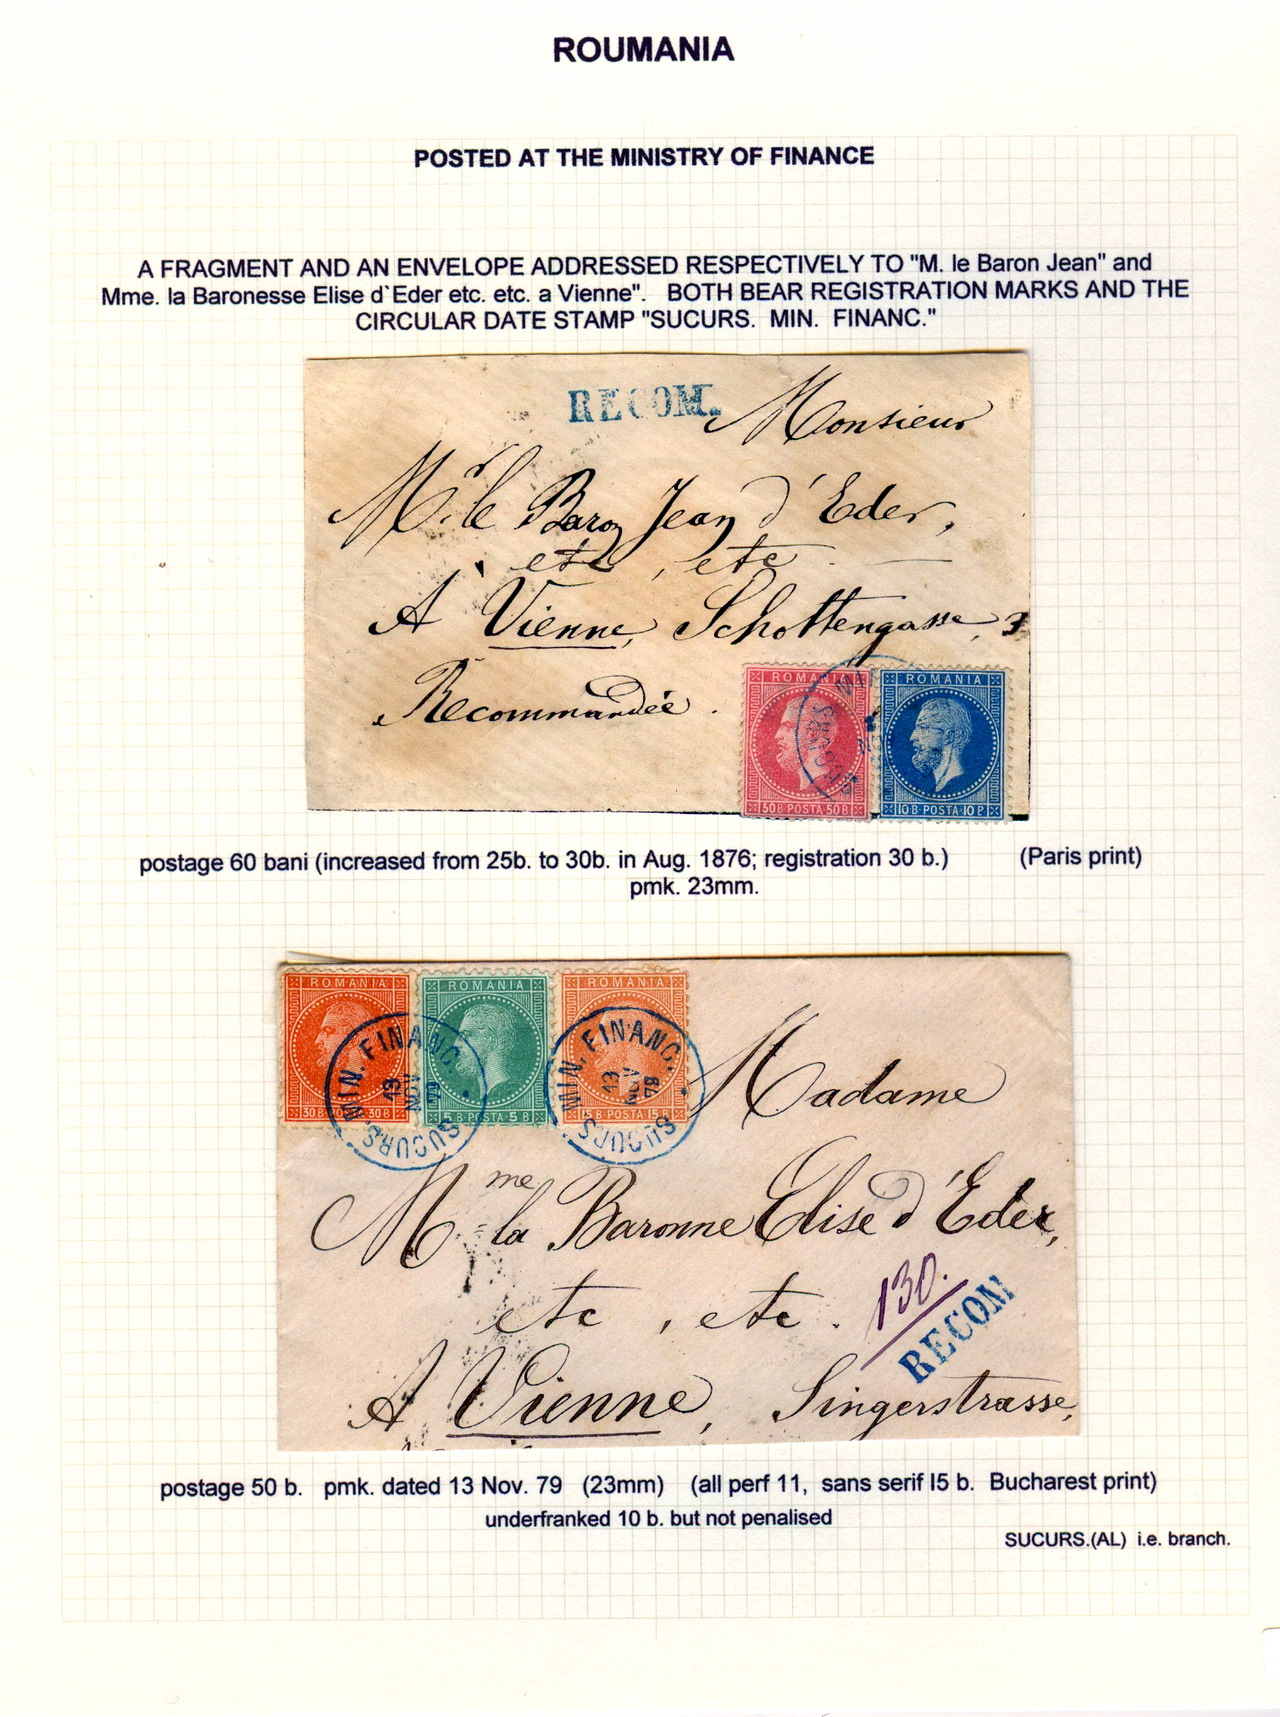 ROUMANIA
POSTED AT THE MINISTRY OF FINANCE
A FRAGMENT AND AN ENVELOPE ADDRESSED RESPECTIVELY TO "M. le Baron Jean" and
Mme. la Baronesse Elise d`Eder etc. etc. a Vienne". BOTH BEAR REGISTRATION MARKS AND THE
CIRCULAR DATE STAMP "SUCURS. MIN. FINANC."
RECOM.
Monsieur
Mr. le Baron Jean d'Eder,
etc, etc.
A Vienne, Schottengasse, 3
Recommandée.
ROMANIA
50 B POSTA 50 B
ROMANIA
10 B POSTA 10 P
SUCURS
postage 60 bani (increased from 25b. to 30b. in Aug. 1876; registration 30 b.) (Paris print)
pmk. 23mm.
ROMANIA
30 B 30 B
ROMANIA
5 B POSTA 5 B
ROMANIA
15 B POSTA 15 B
MIN. FINANC.
13 NOV 79
SUCURS.
MIN. FINANC.
13 NOV 79
SUCURS.
Madame
Mme la Baronne Elise d'Eder,
etc, etc.
130.
RECOM
A Vienne, Singerstrasse,
postage 50 b. pmk. dated 13 Nov. 79 (23mm) (all perf 11, sans serif I5 b. Bucharest print)
underfranked 10 b. but not penalised
SUCURS.(AL) i.e. branch.